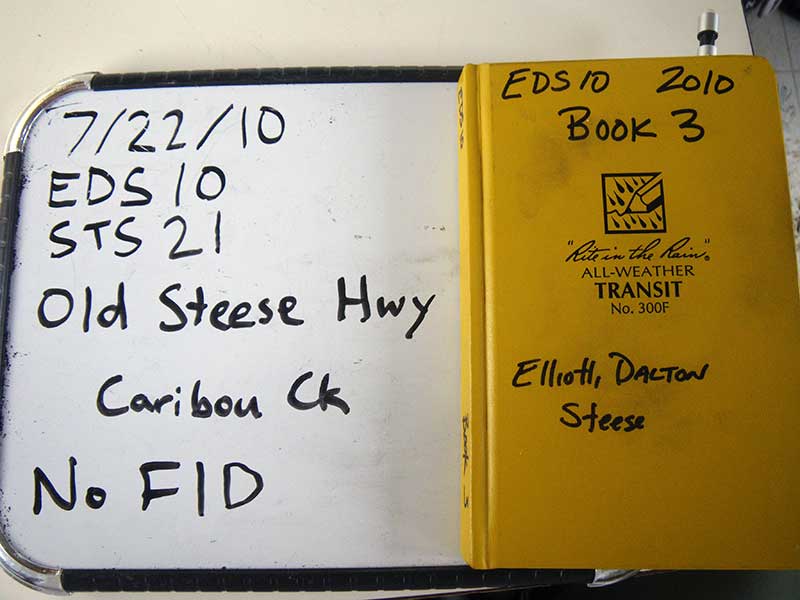 7/22/10
EDS 10
STS 21
Old Steese Hwy
Caribou Ck
No FID
EDS 10 2010
Book 3
"Rite in the Rain"®
ALL-WEATHER
TRANSIT
No. 300F
Elliott, DALTON
Steese
Book 3